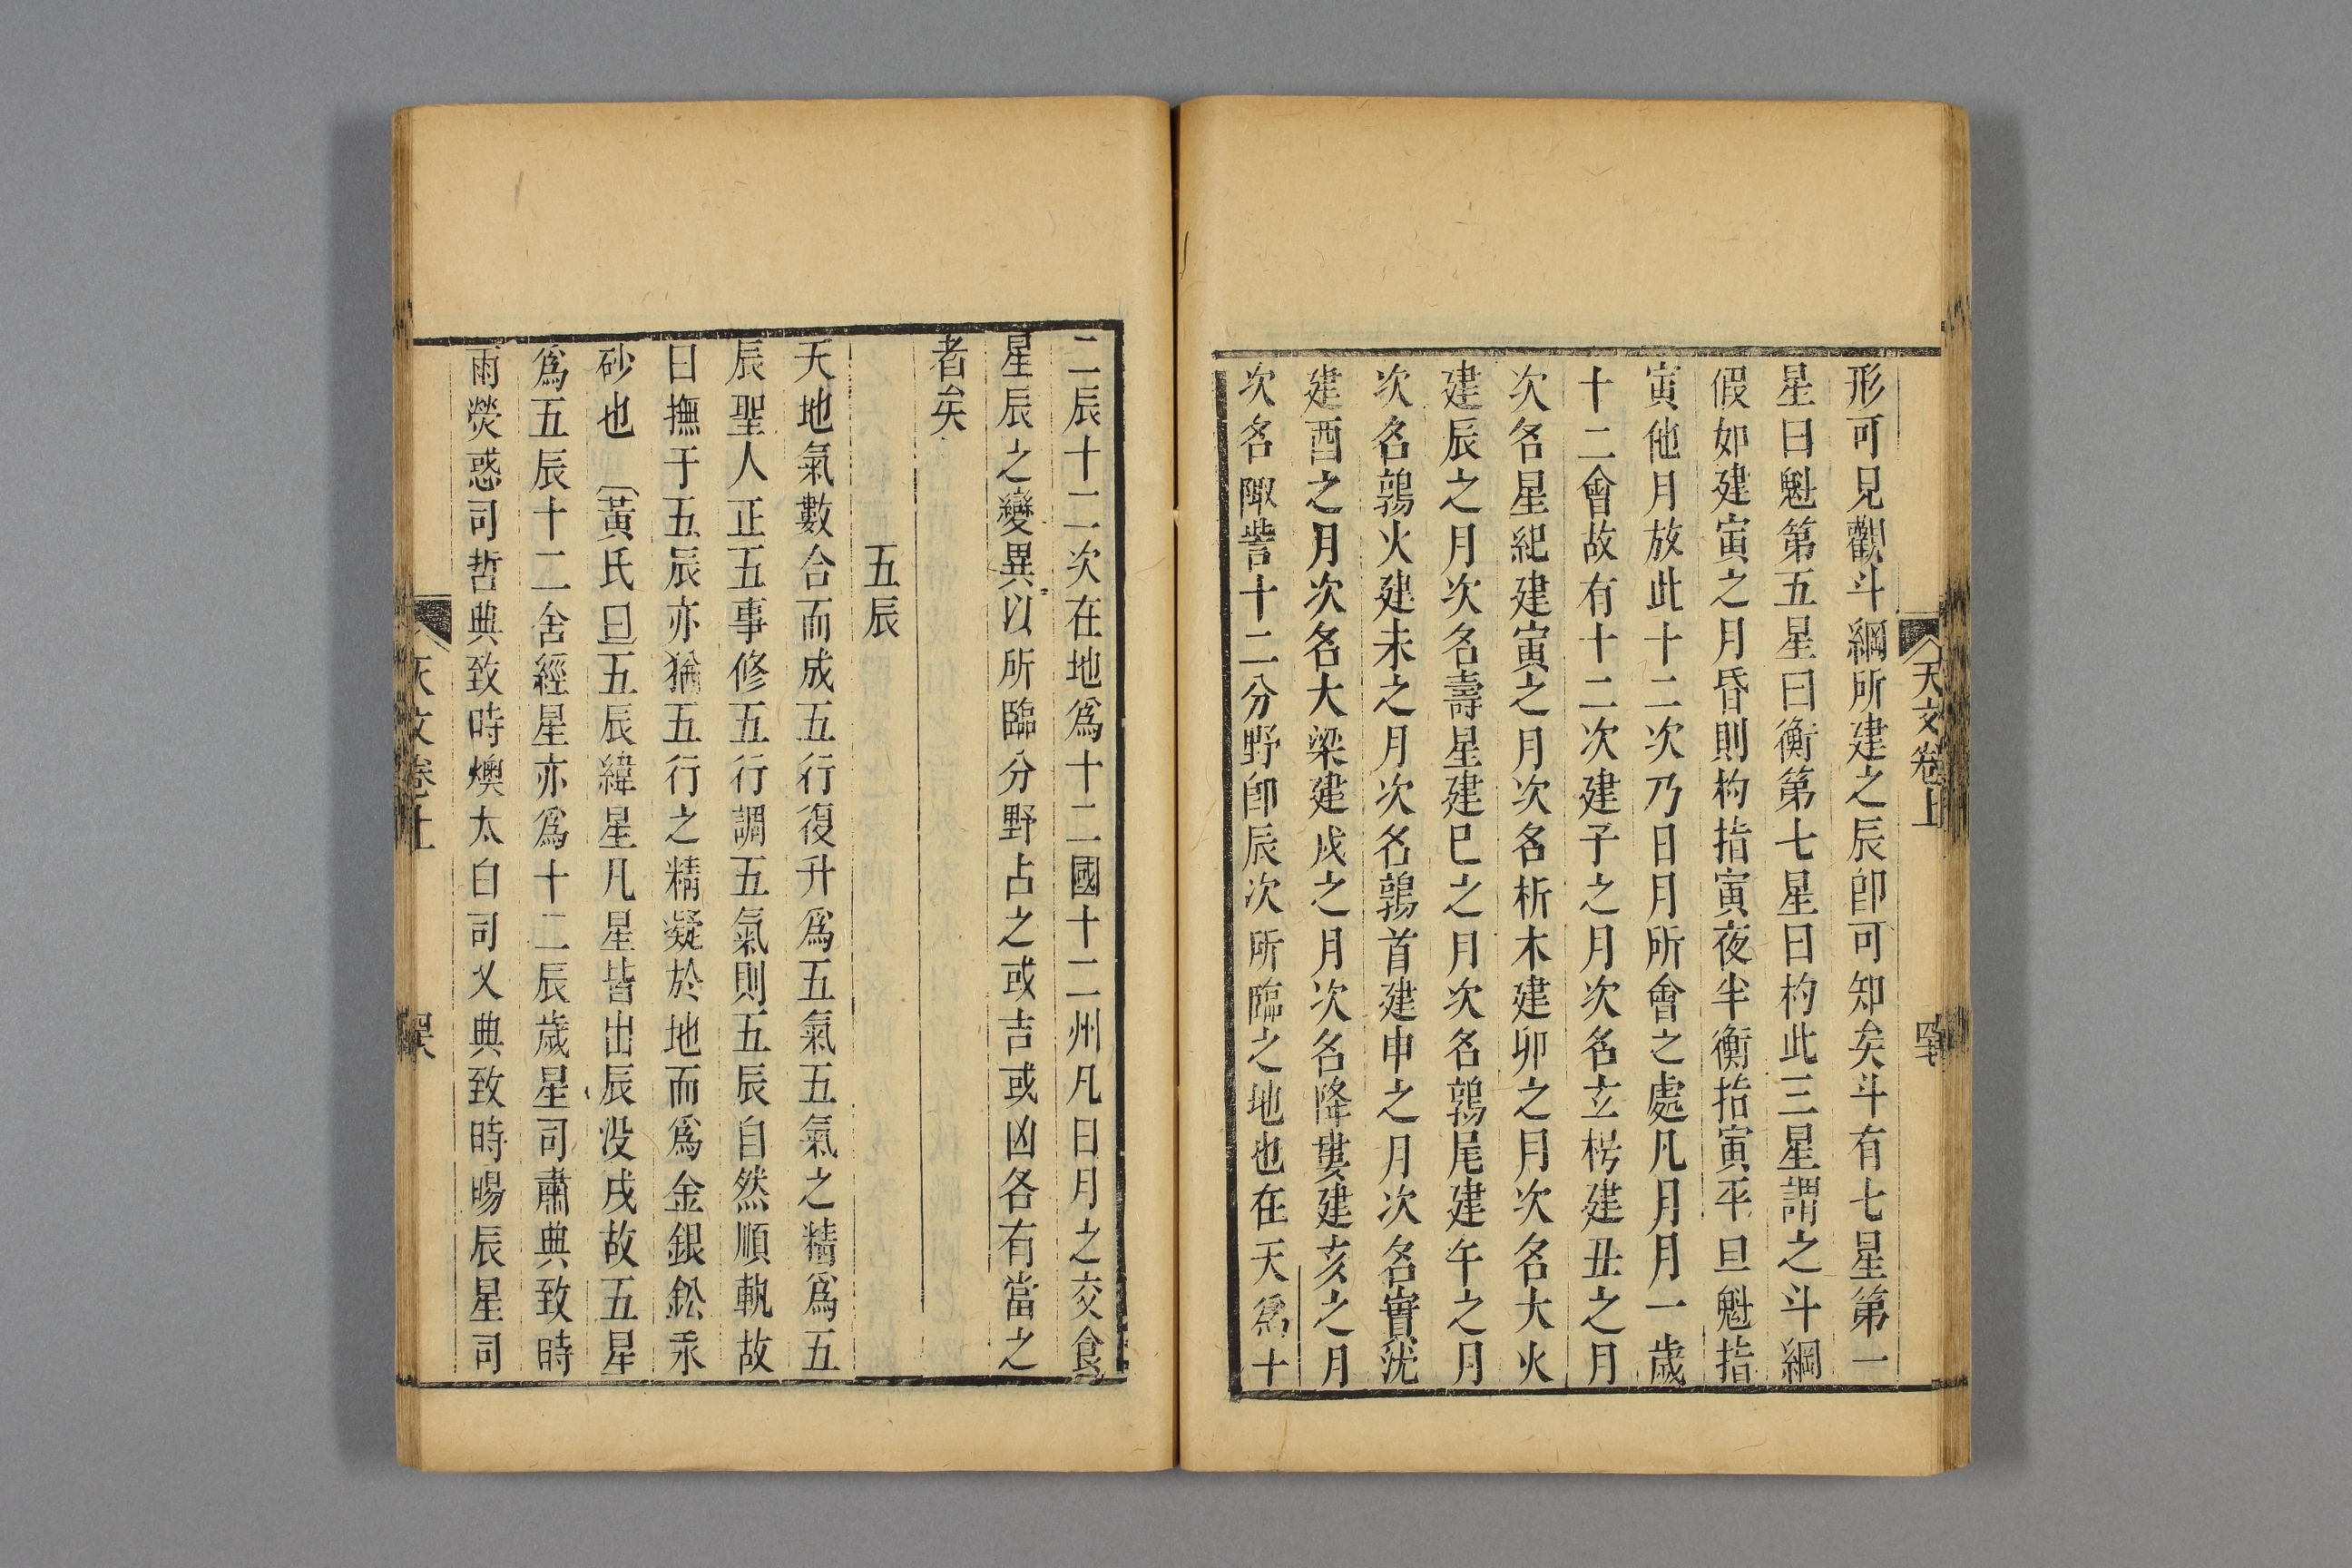 天文卷上
形可見觀斗綱所建之辰卽可知矣斗有七星第一
星曰魁第五星曰衡第七星曰杓此三星謂之斗綱
假如建寅之月昏則杓指寅夜半衡指寅平旦魁指
寅他月放此十二次乃日月所會之處凡月月一歲
十二會故有十二次建子之月次名玄枵建丑之月
次名星紀建寅之月次名析木建卯之月次名大火
建辰之月次名壽星建巳之月次名鶉尾建午之月
次名鶉火建未之月次名鶉首建申之月次名實沈
建酉之月次名大梁建戌之月次名降婁建亥之月
次名陬訾十二分野卽辰次所臨之地也在天爲十
二辰十二次在地爲十二國十二州凡日月之交食
星辰之變異以所臨分野占之或吉或凶各有當之
者矣
五辰
天地氣數合而成五行復升爲五氣五氣之精爲五
辰聖人正五事修五行調五氣則五辰自然順軌故
曰撫于五辰亦猶五行之精凝於地而爲金銀鉛汞
砂也 黃氏曰五辰緯星凡星皆出辰没戌故五星
爲五辰十二舍經星亦爲十二辰歲星司肅典致時
雨熒惑司哲典致時燠太白司乂典致時暘辰星司
天文卷上